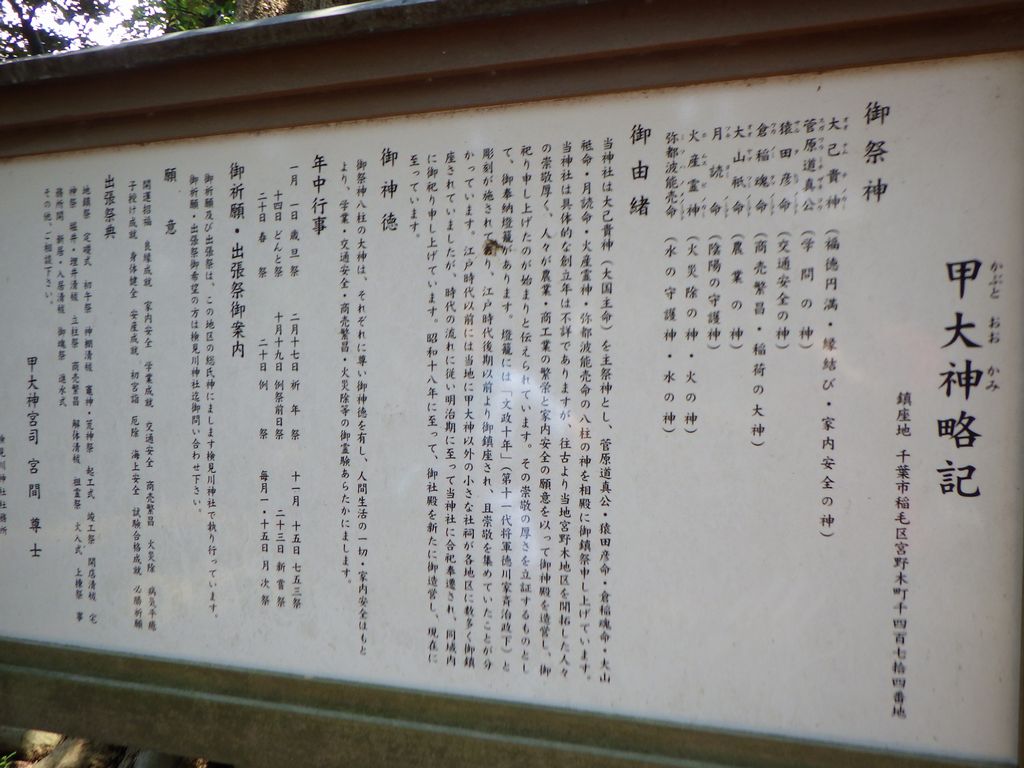 甲大神略記
かぶと おお かみ
鎮座地 千葉市稲毛区宮野木町千四百七拾四番地
御祭神
大己貴神(福徳円満・縁結び・家内安全の神)
菅原道真公(学問の神)
猿田彦命(交通安全の神)
倉稲魂命(商売繁昌・稲荷の大神)
大山祇命(農業の神)
月読命(陰陽の守護神)
火産霊神(火災除の神・火の神)
弥都波能売命(水の守護神・水の神)
御由緒
当神社は大己貴神(大国主命)を主祭神とし、菅原道真公・猿田彦命・倉稲魂命・大山
祇命・月読命・火産霊神・弥都波能売命の八柱の神を相殿に御鎮祭申し上げています。
当神社は具体的な創立年は不詳でありますが、往古より当地宮野木地区を開拓した人々
の崇敬厚く、人々が農業・商工業の繁栄と家内安全の願意を以って御神殿を造営し、御
祀り申し上げたのが始まりと伝えられています。その崇敬の厚さを立証するものとし
て、御奉納燈籠があります。燈籠には「文政十年」(第十一代将軍徳川家斉治政下)と
彫刻が施されており、江戸時代後期以前より御鎮座され、且崇敬を集めていたことが分
かっています。江戸時代以前には当地に甲大神以外の小さな社祠が各地区に数多く御鎮
座されていましたが、時代の流れに従い明治期に至って当神社に合祀奉遷され、同域内
に御祀り申し上げています。昭和十八年に至って、御社殿を新たに御造営し、現在に
至っています。
御神徳
御祭神八柱の大神は、それぞれに尊い御神徳を有し、人間生活の一切・家内安全はもと
より、学業・交通安全・商売繁昌・火災除等の御霊験あらたかにまします。
年中行事
一月 一日 歳旦祭 二月十七日 祈年祭 十一月 十五日 七五三祭
十四日 どんと祭 十月十九日 例祭前日祭 二十三日 新嘗祭
二十日 春祭 二十日 例祭 毎月一・十五日 月次祭
御祈願・出張祭御案内
御祈願及び出張祭は、この地区の総氏神にまします検見川神社で執り行っています。
御祈願・出張祭御希望の方は検見川神社迄御問い合わせ下さい。
願意
開運招福 良縁成就 家内安全 学業成就 交通安全 商売繁昌 火災除 病気平癒
子授け成就 身体健全 安産成就 初宮詣 厄除 海上安全 試験合格成就 必勝祈願
出張祭典
地鎮祭 定礎式 初午祭 神棚清祓 竈神・荒神祭 起工式 竣工祭 開店清祓 宅
神祭 堀井・埋井清祓 立柱祭 商売繁昌 解体清祓 祖霊祭 火入式 上棟祭 事
務所開 新居・入居清祓 御魂祭 進水式
その他、ご相談下さい。
甲大神宮司 宮間 尊士
検見川神社社務所